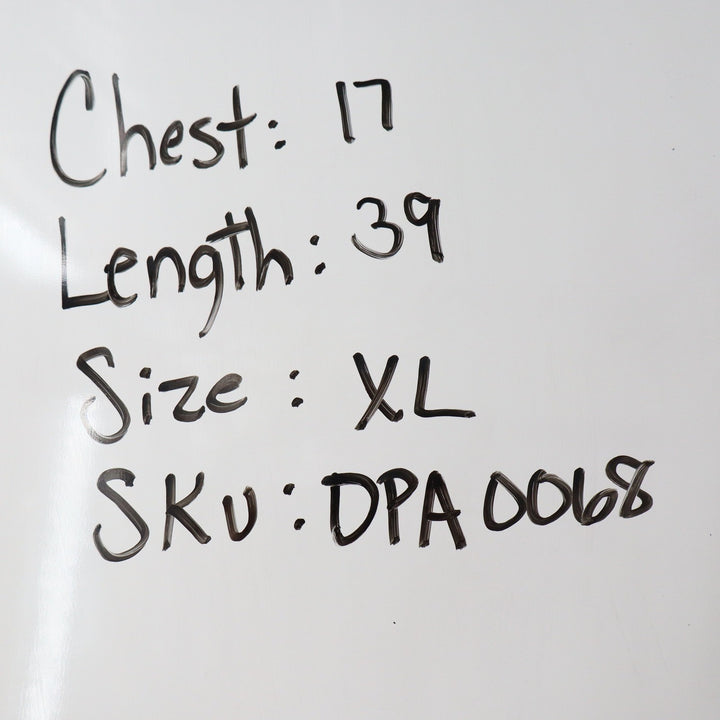 Chest: 17
Length: 39
Size : XL
SKU : DPA0068